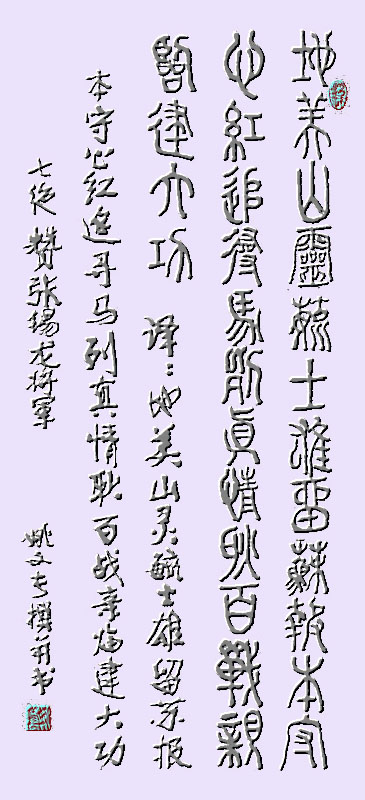 地美山靈毓士雄留蘇報本守
心紅追尋馬列真情耿百戰親
臨建大功 译：地美山灵毓士雄留苏报
本守心红追寻马列真情耿百战亲临建大功
七绝 赞张锡龙将军 姚文专撰并书